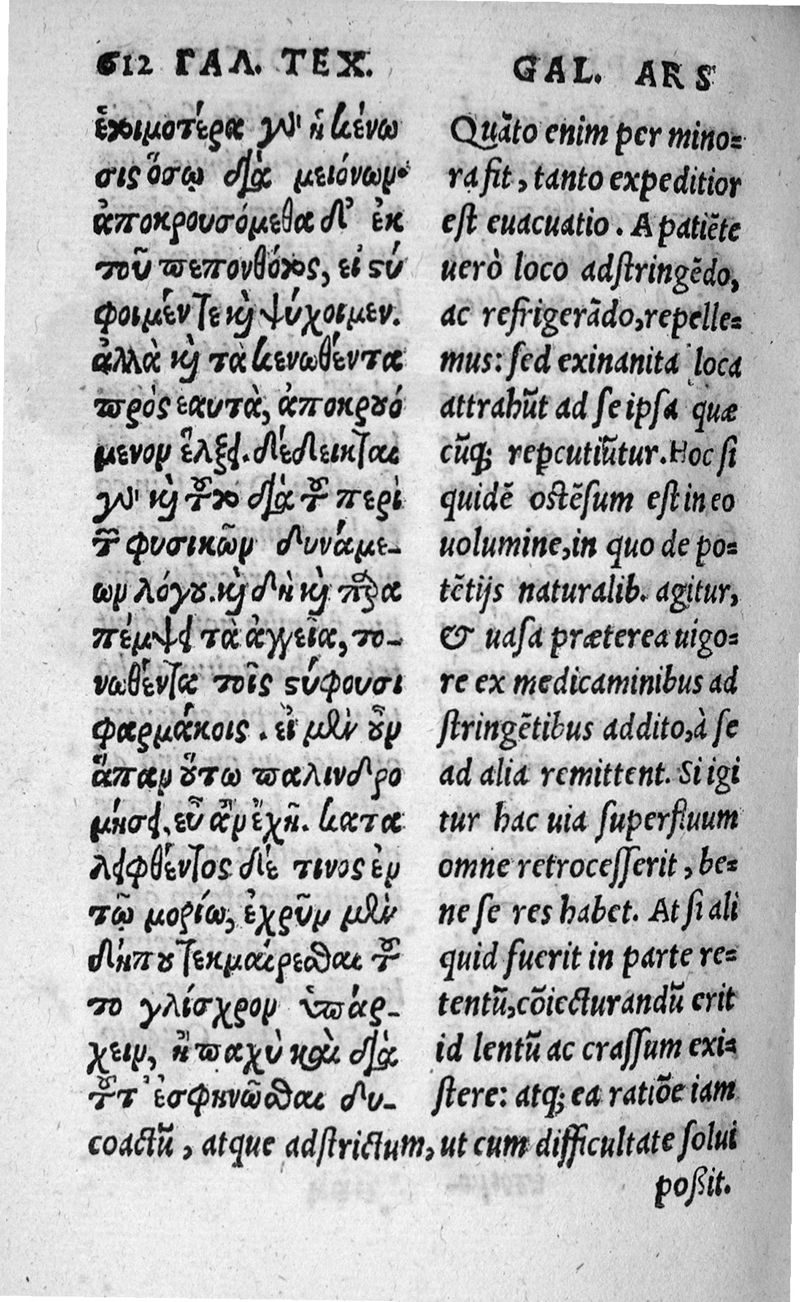 612 ΓΑΛ. ΤΕΧ.
ἑτοιμοτέρα γὰρ ἡ κένω
σις ὅσῳ διὰ μειόνων·
ἀποκρουσόμεθα δ' ἐκ
τοῦ πεπονθότος, εἰ στύ
φοιμέν τε καὶ ψύχοιμεν.
ἀλλὰ καὶ τὰ κενωθέντα
πρὸς ἑαυτὰ, ἀποκρουό
μενον ἕλξει. δέδεικται
γὰρ καὶ τοῦτο διὰ τῶν περὶ
τῶν φυσικῶν δυνάμε-
ων λόγου. καὶ δὴ καὶ παρα
πέμψει τὰ ἀγγεῖα, το-
νωθέντα τοῖς στύφουσι
φαρμάκοις . εἰ μὲν οὖν
ἅπαν οὕτω παλινδρο
μήσει, εὖ ἂν ἔχῃ. κατα
λειφθέντος δέ τινος ἐν
τῷ μορίῳ, ἐχρῆν μὲν
δήπου τεκμαίρεσθαι τοῦ
το γλίσχρον ὑπάρ-
χειν, ἢ παχὺ καὶ διὰ
τοῦτ' ἐσφηνῶσθαι δυ-
GAL. ARS
Quãto enim per mino-
ra fit, tanto expeditior
est euacuatio . A patiẽte
uerò loco adstringẽdo,
ac refrigerãdo, repelle-
mus: sed exinanita loca
attrahũt ad se ipsa quæ
cũq; repcutiũtur. Hoc si
quidẽ ostẽsum est in eo
uolumine, in quo de po-
tẽtijs naturalib. agitur,
& uasa præterea uigo-
re ex medicaminibus ad
stringẽtibus addito, à se
ad alia remittent. Si igi
tur hac uia superfluum
omne retrocesserit, be-
ne se res habet. At si ali
quid fuerit in parte re-
tentũ, cõiecturandũ erit
id lentũ ac crassum exi-
stere: atq; ea ratiõe iam
coactũ, atque adstrictum, ut cum difficultate solui
poßit.